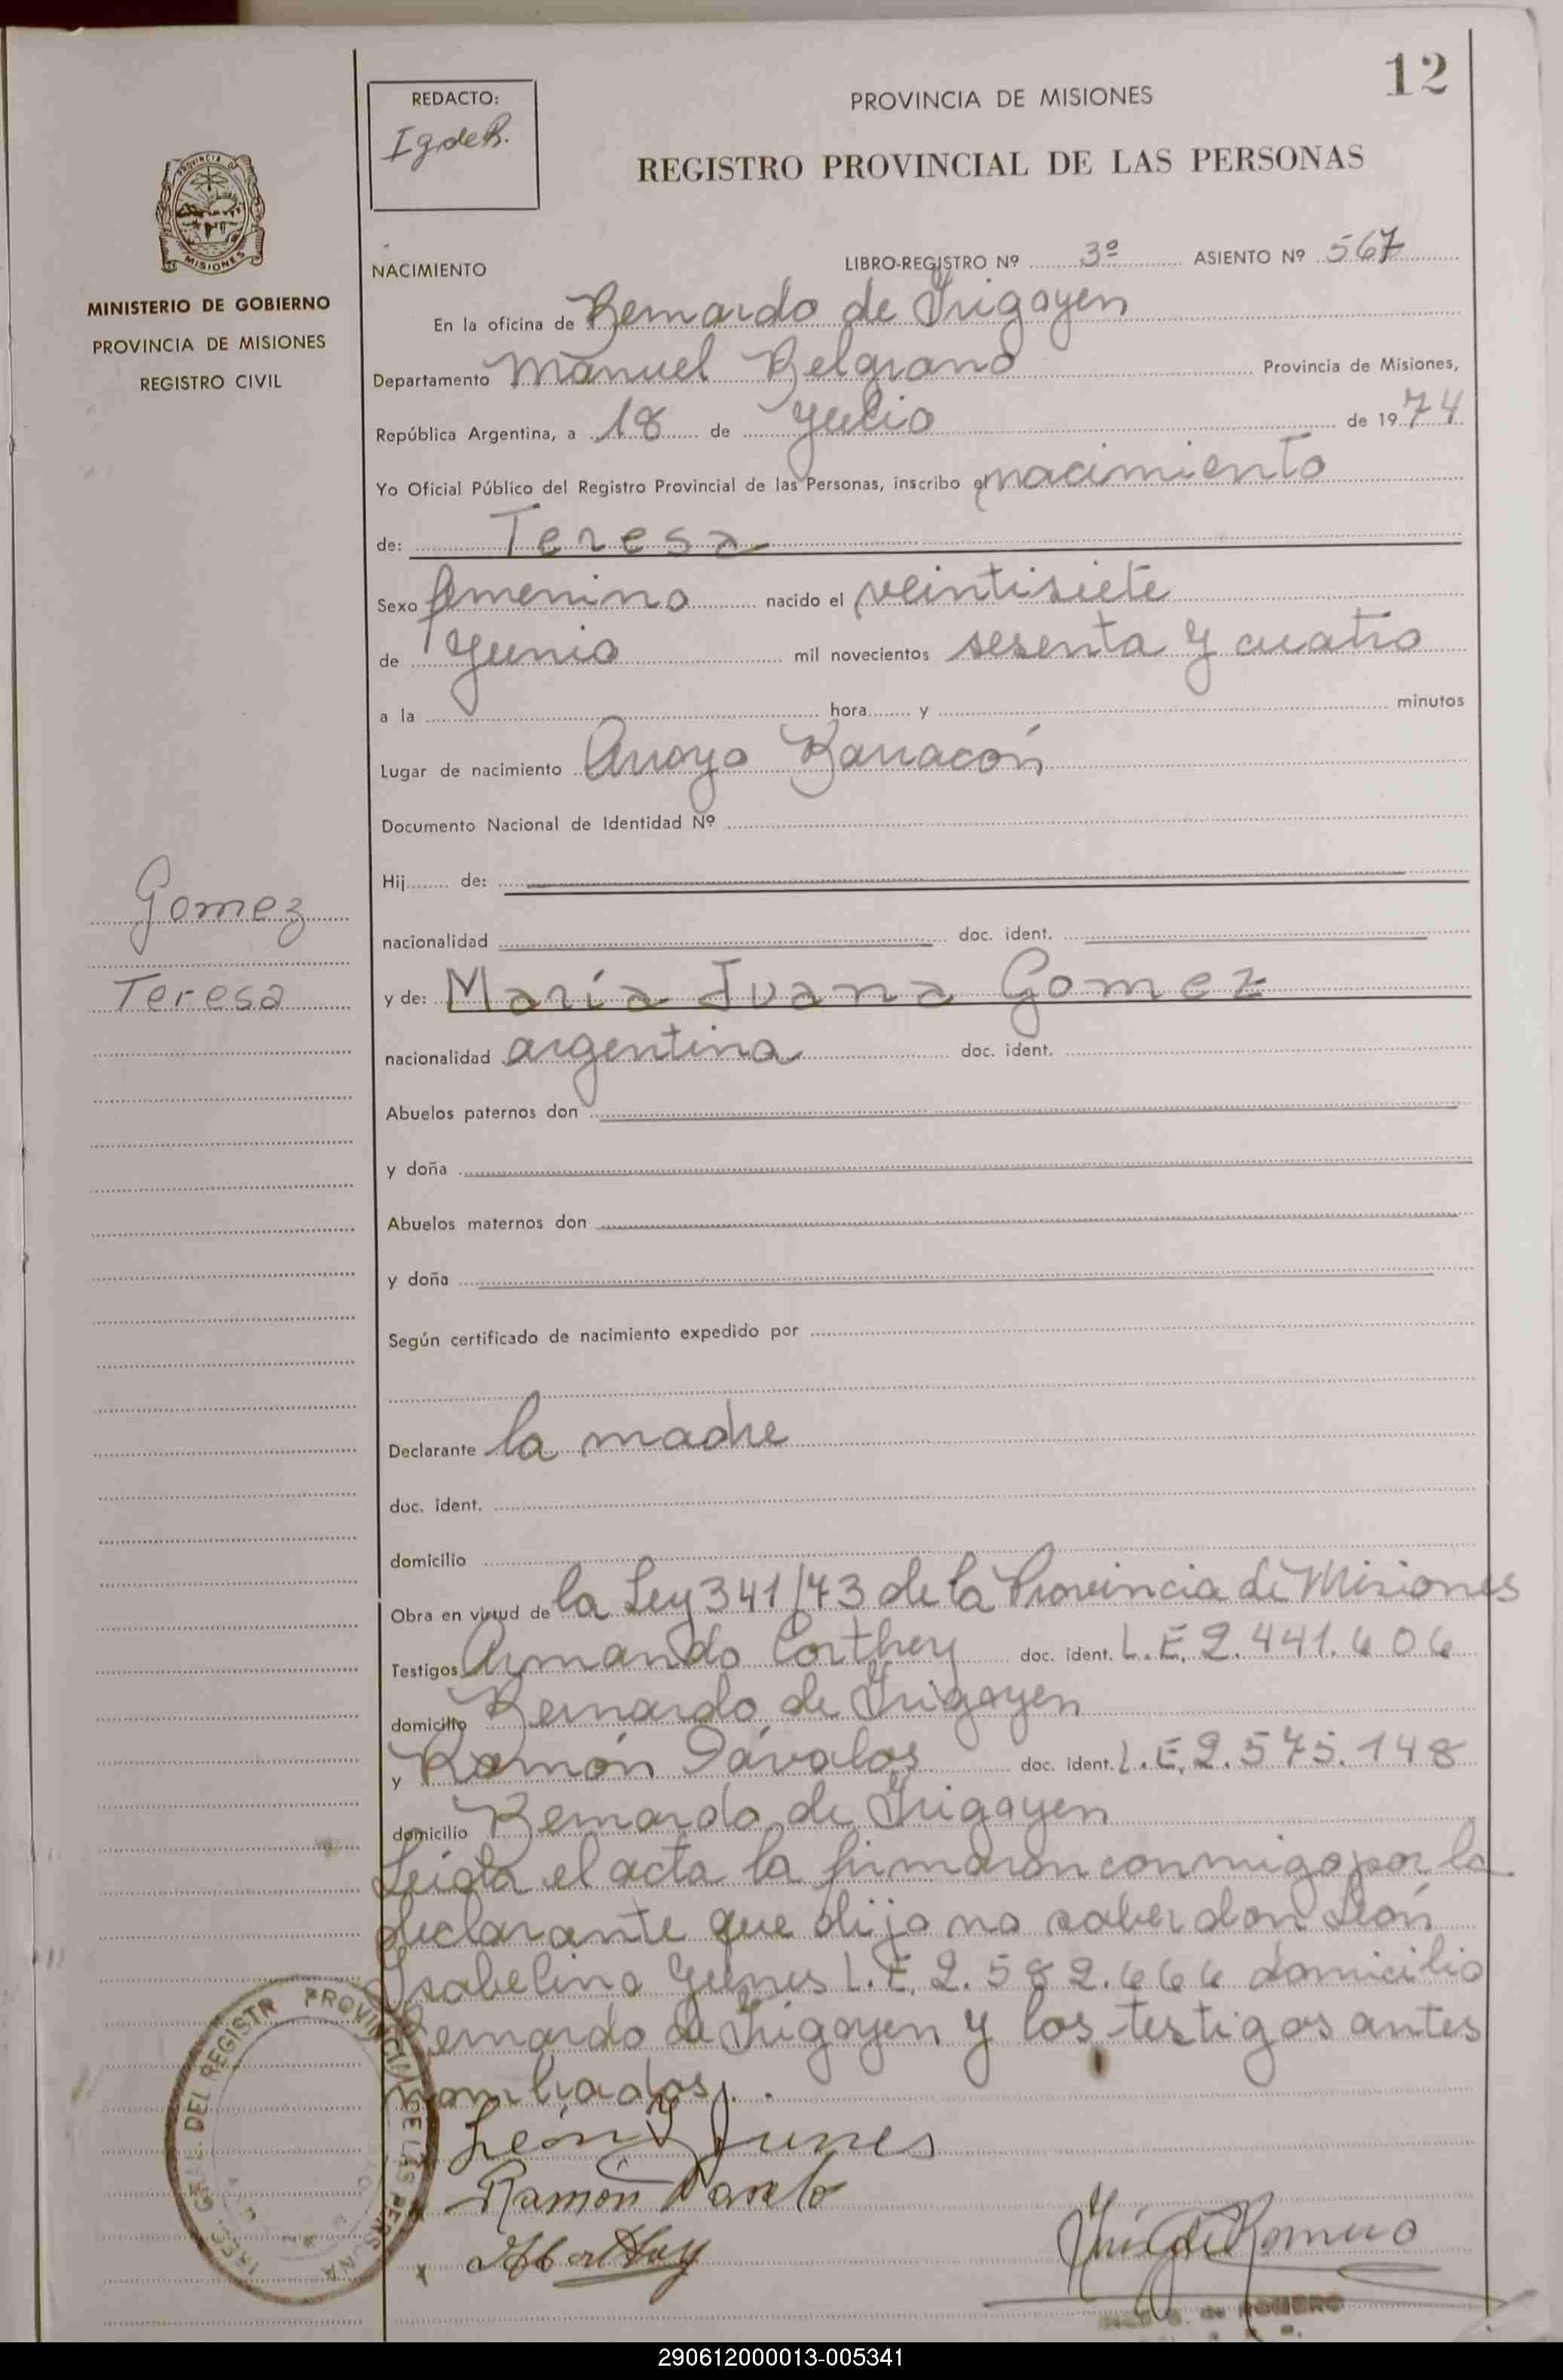 12
REDACTO:
PROVINCIA DE MISIONES
REGISTRO PROVINCIAL DE LAS PERSONAS
PROVINCIA D
MISIONES
MINISTERIO DE GOBIERNO
PROVINCIA DE MISIONES
REGISTRO CIVIL
NACIMIENTO LIBRO-REGISTRO Nº 3º ASIENTO Nº 567
En la oficina de Bernardo de Irigoyen
Departamento Manuel Belgrano Provincia de Misiones,
República Argentina, a 18 de Julio de 1974
Yo Oficial Público del Registro Provincial de las Personas, inscribo el nacimiento
de: Teresa
Sexo femenino nacido el veintisiete
de Junio mil novecientos sesenta y cuatro
a la hora y minutos
Lugar de nacimiento Arroyo Barracón
Documento Nacional de Identidad Nº
Hij de:
Gomez
nacionalidad doc. ident.
Teresa
y de: María Juana Gomez
nacionalidad argentina doc. ident.
Abuelos paternos don
y doña
Abuelos maternos don
y doña
Según certificado de nacimiento expedido por
Declarante la madre
doc. ident.
domicilio
Obra en virtud de la Ley 341/73 de la Provincia de Misiones
Testigos Armando Corthey doc. ident. L.E. 2.441.606
domicilio Bernardo de Irigoyen
y Ramón Dávalos doc. ident. L.E. 2.575.148
domicilio Bernardo de Irigoyen
Leída el acta la firmaron conmigo por la
declarante que dijo no saber don León
Isabelino Yunes L.E. 2.582.666 domicilio
Bernardo de Irigoyen y los testigos antes
nombrados.
León Y Junes
Ramón
de Romero
de ROMERO
DEL REGISTR PROVINCIAL DE LAS PERSONA
290612000013-005341